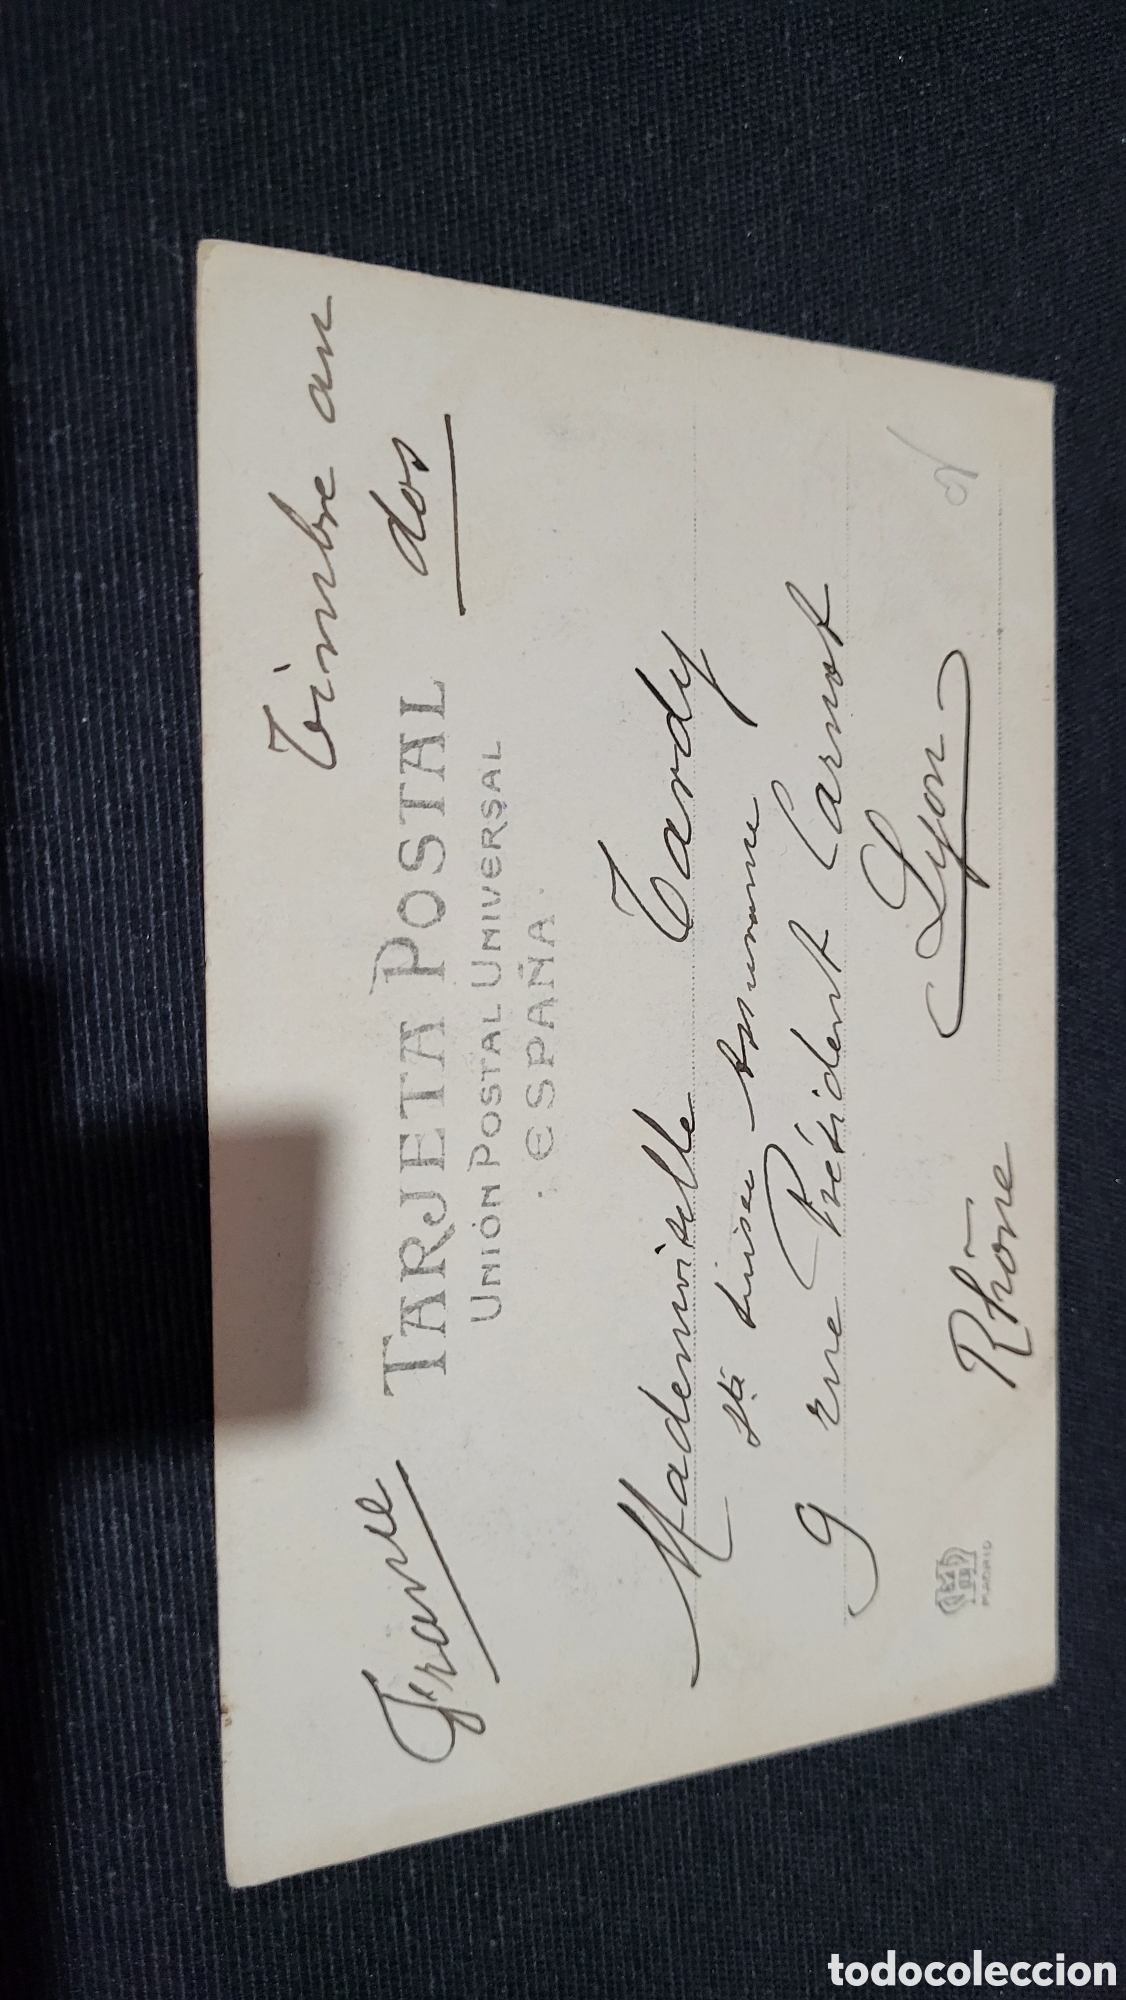 Timbre au
dos
France
TARJETA POSTAL
UNIÓN POSTAL UNIVERSAL
· ESPAÑA ·
Mademoiselle Tardy
9 rue Président Carnot
Lyon
Rhône
MADRID
todocoleccion